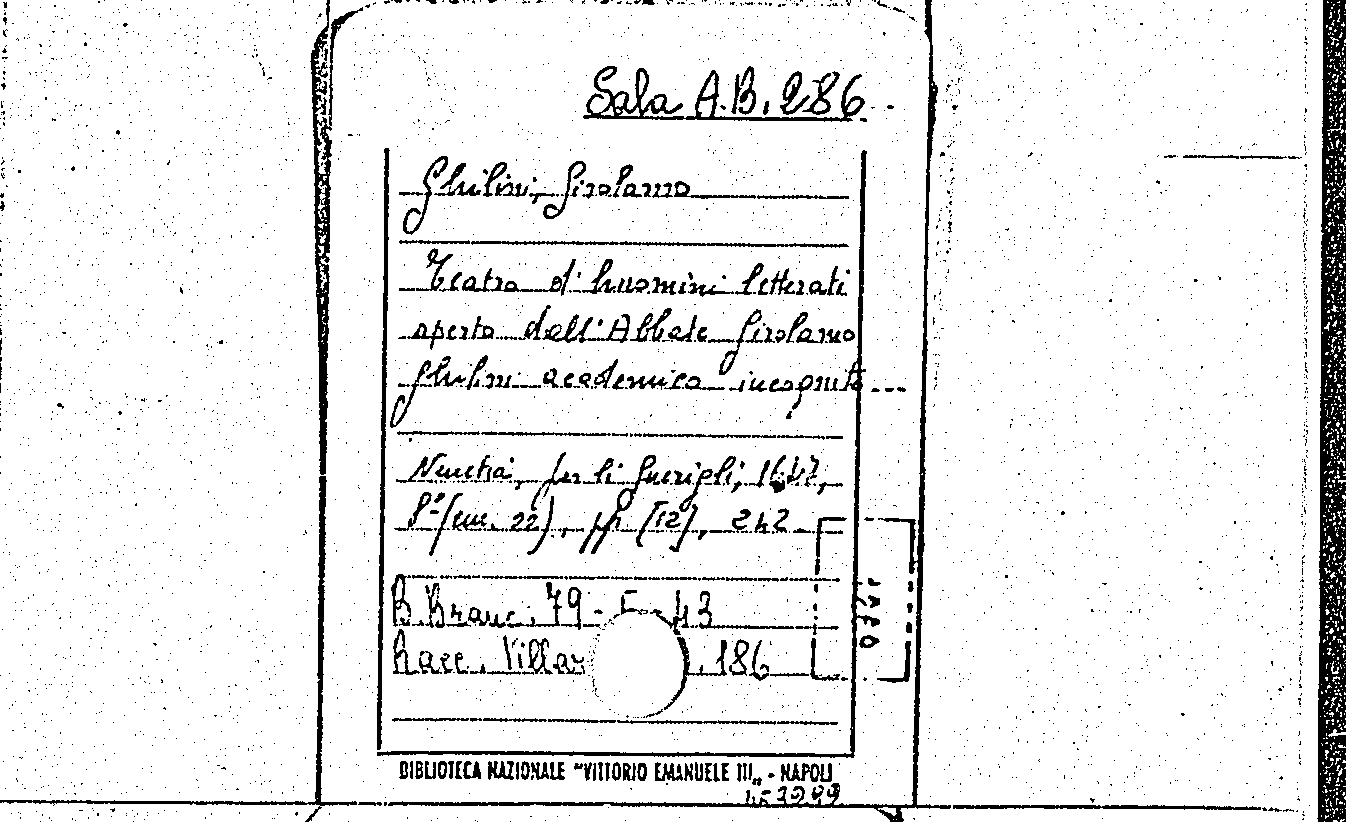 Sala A.B. 286.
Ghilini, Girolamo
Teatro d'huomini letterati
aperto dall'Abbate Girolamo
Ghilini academico incognito...
Venetia, per li Guerigli, 1647,
8°(cm. 22), pp. [12], 242
B. Branc. 79- 43
Racc. Villar . 186
BIBLIOTECA NAZIONALE "VITTORIO EMANUELE III„ - NAPOLI